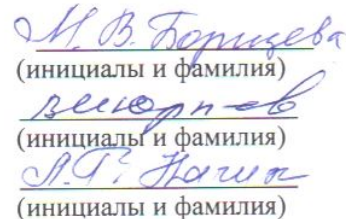 М. В. Борщева
(инициалы и фамилия)
(инициалы и фамилия)
А. Г.
(инициалы и фамилия)